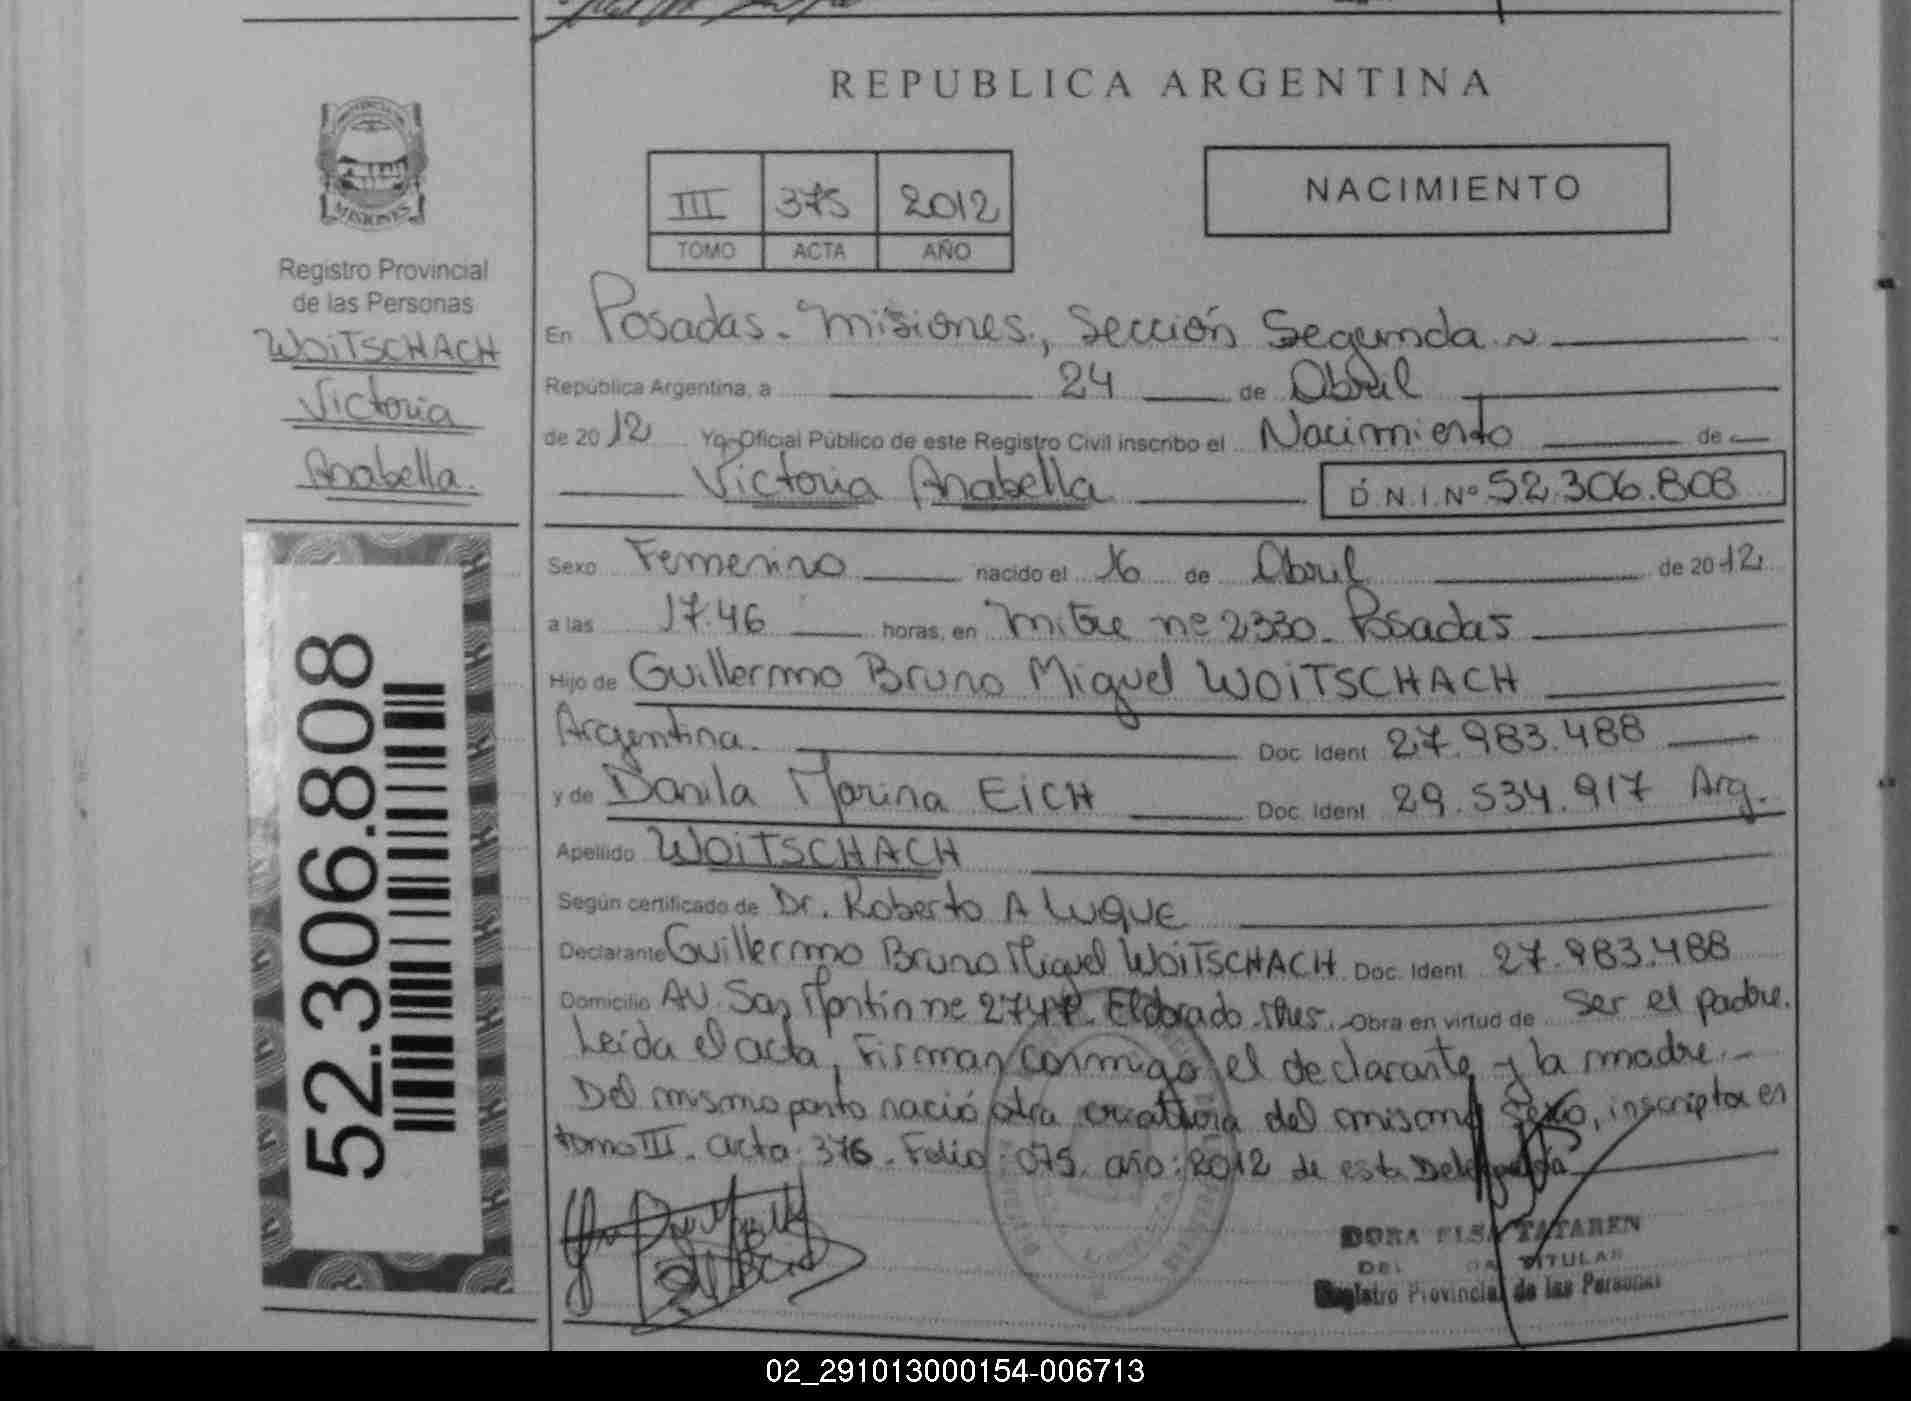 REPUBLICA ARGENTINA
MISIONES
Registro Provincial
de las Personas
WOiTSCHACH
Victoria
Anabella.
52.306.808
III 375 2012
TOMO ACTA AÑO
NACIMIENTO
En Posadas - Misiones, Sección Segunda
República Argentina, a 24 de Abril
de 2012 Yo, Oficial Público de este Registro Civil inscribo el Nacimiento de
Victoria Anabella D.N.I. Nº 52.306.808
Sexo Femenino nacido el 16 de Abril de 2012
a las 17.46 horas, en Mitre nº 2330 - Posadas
Hijo de Guillermo Bruno Miguel WOiTSCHACH
Argentina. Doc. Ident 27.983.488
y de Danila Marina EiCH Doc. Ident 29.534.917 Arg.
Apellido WOiTSCHACH
Según certificado de Dr. Roberto A LUQUE
Declarante Guillermo Bruno Miguel WOiTSCHACH Doc. Ident 27.983.488
Domicilio AV. San Martin nº Eldorado - Mnes. Obra en virtud de ser el padre.
Leida el acta, Firman conmigo el declarante y la madre.-
Del mismo parto nació otra criattura del mismo sexo, inscripta en
tomo III - acta: 376 - Folio: 075. año: 2012 de esta Delegación
DORA ELSA TATAREN
TITULAR
Registro Provincial de las Personas
02_291013000154-006713